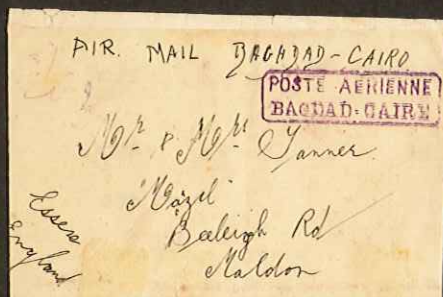 AIR MAIL BAGHDAD-CAIRO
POSTE AERIENNE
BAGDAD-CAIRE
Mr & Mrs Tanner.
"Hazel"
Beeleigh Rd
Maldon
Essex
England